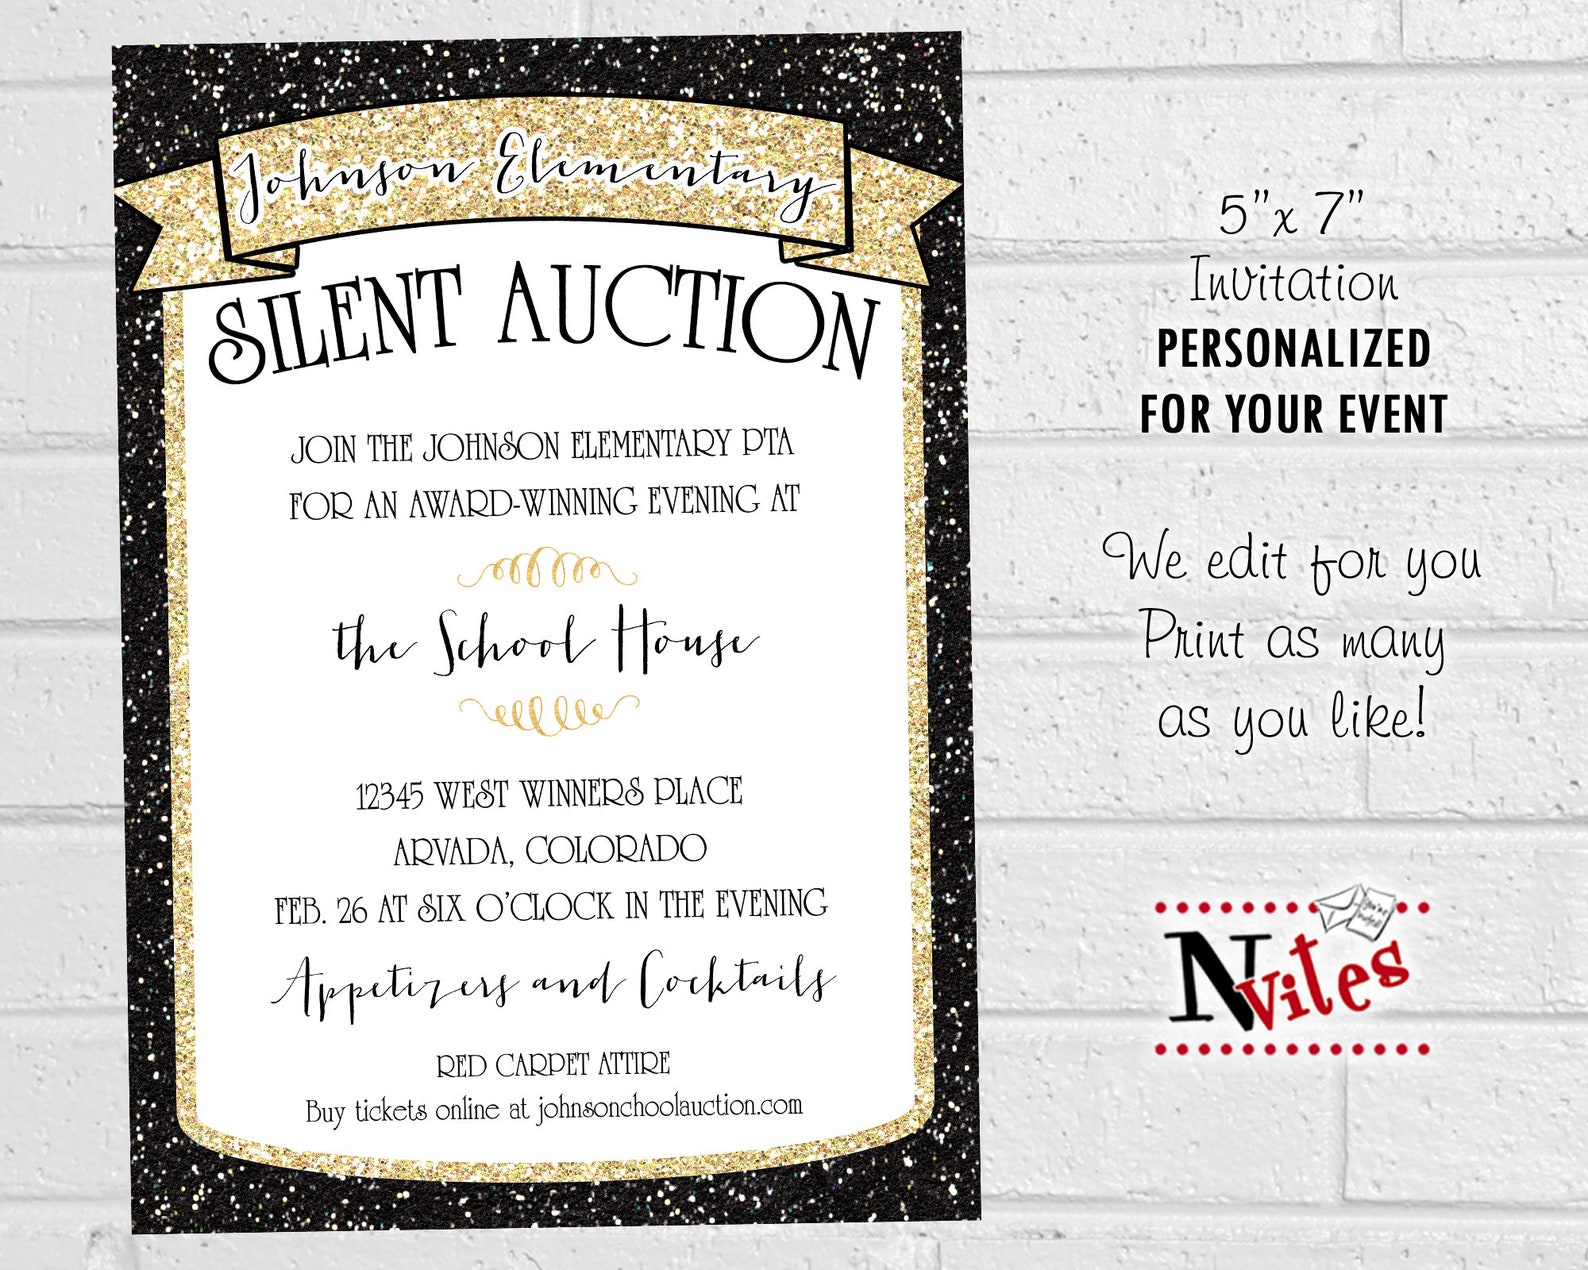 Johnson Elementary
SILENT AUCTION
JOIN THE JOHNSON ELEMENTARY PTA
FOR AN AWARD-WINNING EVENING AT
the School House
12345 WEST WINNERS PLACE
ARVADA, COLORADO
FEB. 26 AT SIX O'CLOCK IN THE EVENING
Appetizers and Cocktails
RED CARPET ATTIRE
Buy tickets online at johnsonchoolauction.com
5"x 7"
Invitation
PERSONALIZED
FOR YOUR EVENT
We edit for you
Print as many
as you like!
you're
invited!
Nvites